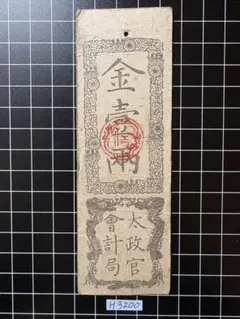 金壹兩
太政官
會計局
H3200